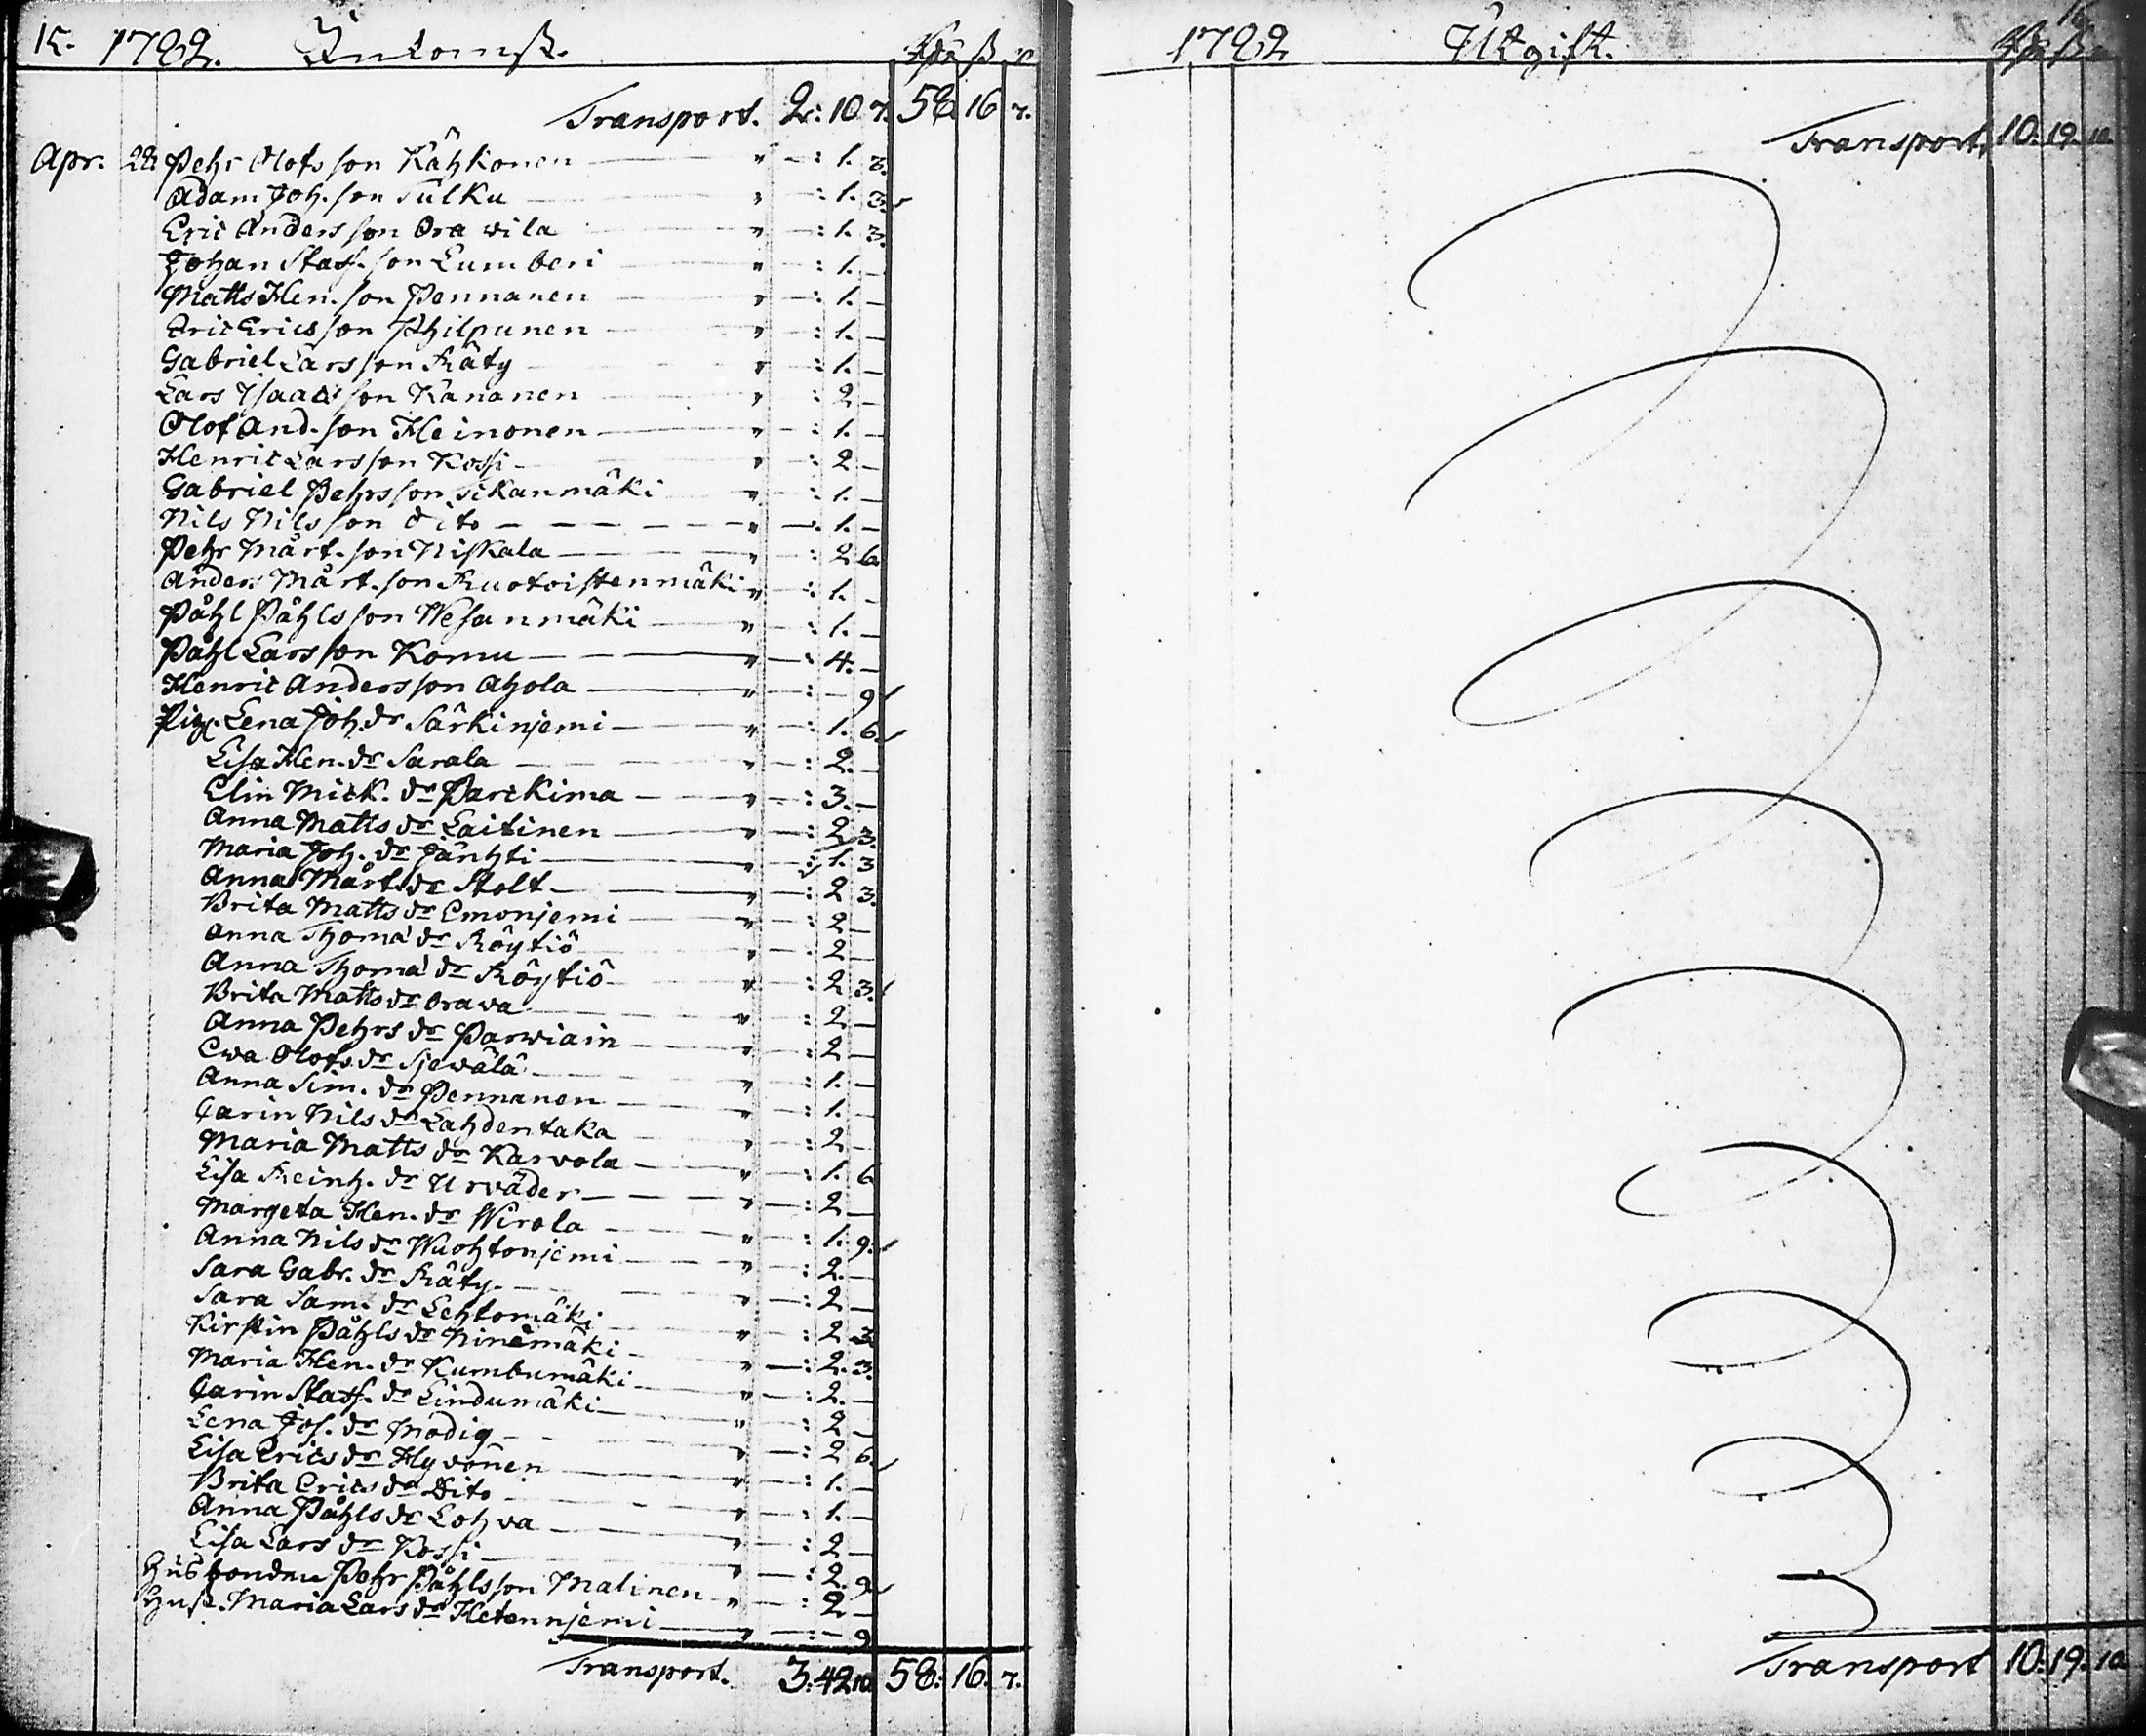 15. 1782. Inkomst. Rdr ß r
Transport. 2: 10 7. 58. 16 7.
Apr. 28. Pehr Olofs son Kähkonen — " —: 1. 3.
Adam Joh. son Sulku — " —: 1. 3.
Eric Anders son Orawila — " —: 1. 3.
Johan Staff. son Lumberi — " —: 1. —
Matts Hen. son Pennanen — " —: 1. —
Eric Erics son Philpunen — " —: 1. —
Gabriel Lars son Räty — " —: 1. —
Lars Isaacs son Kananen — " —: 2 —
Olof And. son Heinonen — " —: 1. —
Henric Lars son Kossi — " —: 2 —
Gabriel Pehrs son Sikanmäki — " —: 1. —
Nils Nils son dito — " —: 1. —
Pehr Mårt. son Niskala — " —: 2 6.
Anders Mårt. son Ruotoistenmäki " —: 1. —
Påhl Påhls son Wesanmäki — " —: 1. —
Påhl Lars son Komu — " —: 4. —
Henric Anders son Ahola — " —: — 9
Pig. Lena Joh. dr Särkinjemi — " —: 1. 6.
Lisa Hen. dr Sarala — " —: 2. —
Elin Mick. dr Parckima — " —: 3. —
Anna Matts dr Laitinen — " —: 2 3.
Maria Joh. dr Jänhti — " —: 1. 3
Anna Mårt. dr Stolt — " —: 2 3.
Brita Matts dr Emonjemi — " —: 2 —
Anna Thoma dr Röytiö — " —: 2 —
Anna Thoma dr Röytiö — " —: 2 3.
Brita Matts dr Orawa — " —: 2 —
Anna Pehrs dr Parwiain — " —: 2 —
Ewa Olofs dr Sjewälä — " —: 1. —
Anna Sim. dr Pennanen — " —: 1. —
Carin Nils dr Lahdentaka — " —: 2 —
Maria Matts dr Karvola — " —: 1. 6
Lisa Reinh. dr Urväder — " —: 2 —
Margeta Hen. dr Wirola — " —: 1. 9.
Anna Nils dr Wuohtonjemi — " —: 2. —
Sara Gabr. dr Räty — " —: 2 —
Sara Sam. dr Lehtomäki — " —: 2 3
Kirstin Påhls dr Ninimäki — " —: 2. 3.
Maria Hen. dr Kumbumäki — " —: 2. —
Carin Staff. dr Lindumäki — " —: 2 —
Lena Jos. dr Modig — " —: 2 6.
Lisa Erics dr Hyvönen — " —: 1. —
Brita Erics dr Dito — " —: 1. —
Anna Påhls dr Lohva — " —: 2 —
Lisa Lars dr Kossi — " —: 2. 9.
Husbonden Pehr Påhls son Malinen — " —: 2 —
Hust. Maria Lars dr Hetennjemi — " —: — 9
Transport. 3: 42 10. 58: 16. 7.
1782 Utgift. Rdr ß
Transport. 10: 19. 10.
Transport 10: 19. 10